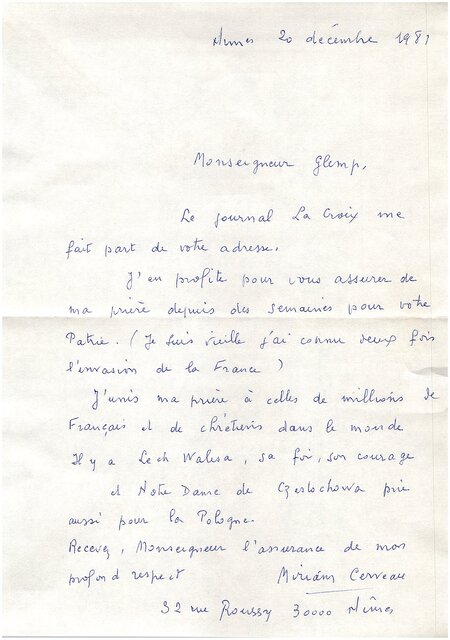 Nîmes 20 décembre 1981
Monseigneur Glemp,
Le journal La Croix me
fait part de votre adresse.
J'en profite pour vous assurer de
ma prière depuis des semaines pour votre
Patrie. ( Je suis vieille j'ai connu deux fois
l'invasion de la France )
J'unis ma prière à celles de millions de
Français et de chrétiens dans le monde
Il y a Lech Walesa, sa foi, son courage
et Notre Dame de Czestochowa prie
aussi pour la Pologne.
Recevez, Monseigneur l'assurance de mon
profond respect Miriam Cerveau
32 rue Roussy 30000 Nîmes